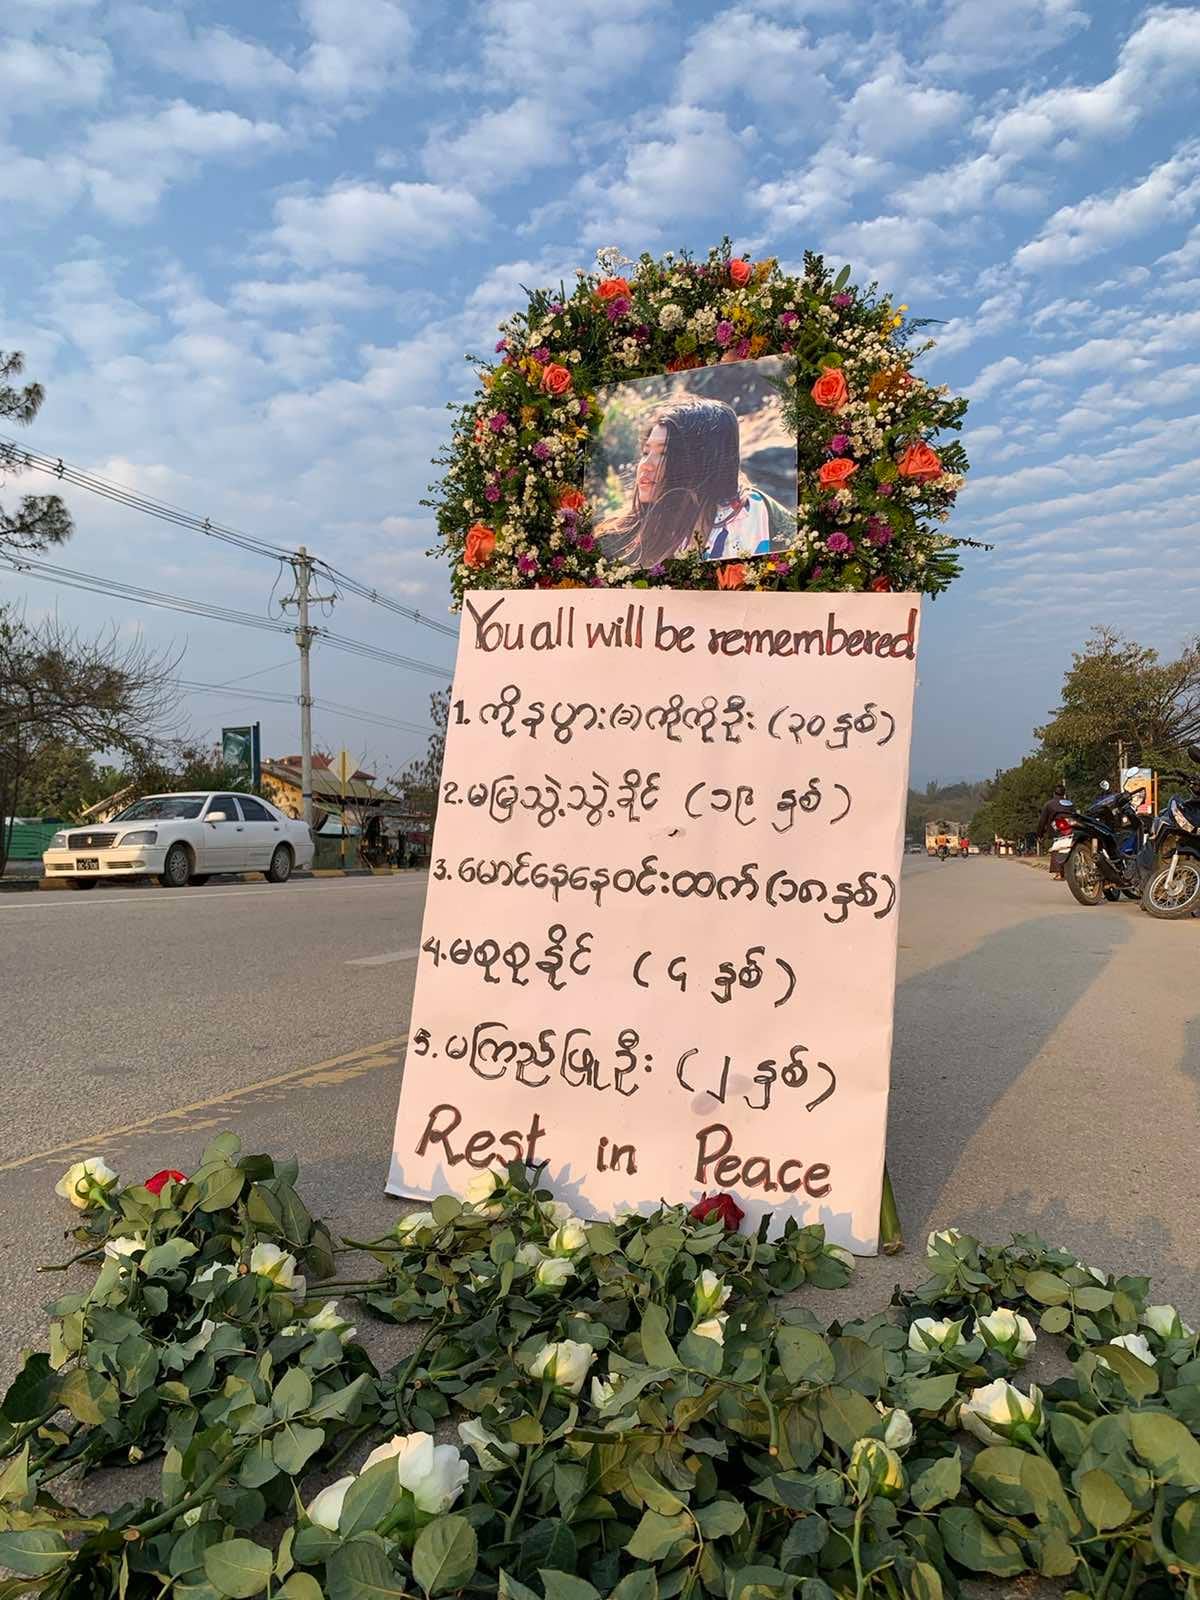 You all will be remembered
1. ကိုနပွား(ခ)ကိုကိုဦး (၃၀နှစ်)
2. မမြသွဲ့သွဲ့ခိုင် (၁၉ နှစ်)
3. မောင်နေနေဝင်းထက် (၁၈နှစ်)
4. မစုစုနိုင် (၄ နှစ်)
5. မကြည်ဖြူဦး (၂ နှစ်)
Rest in Peace